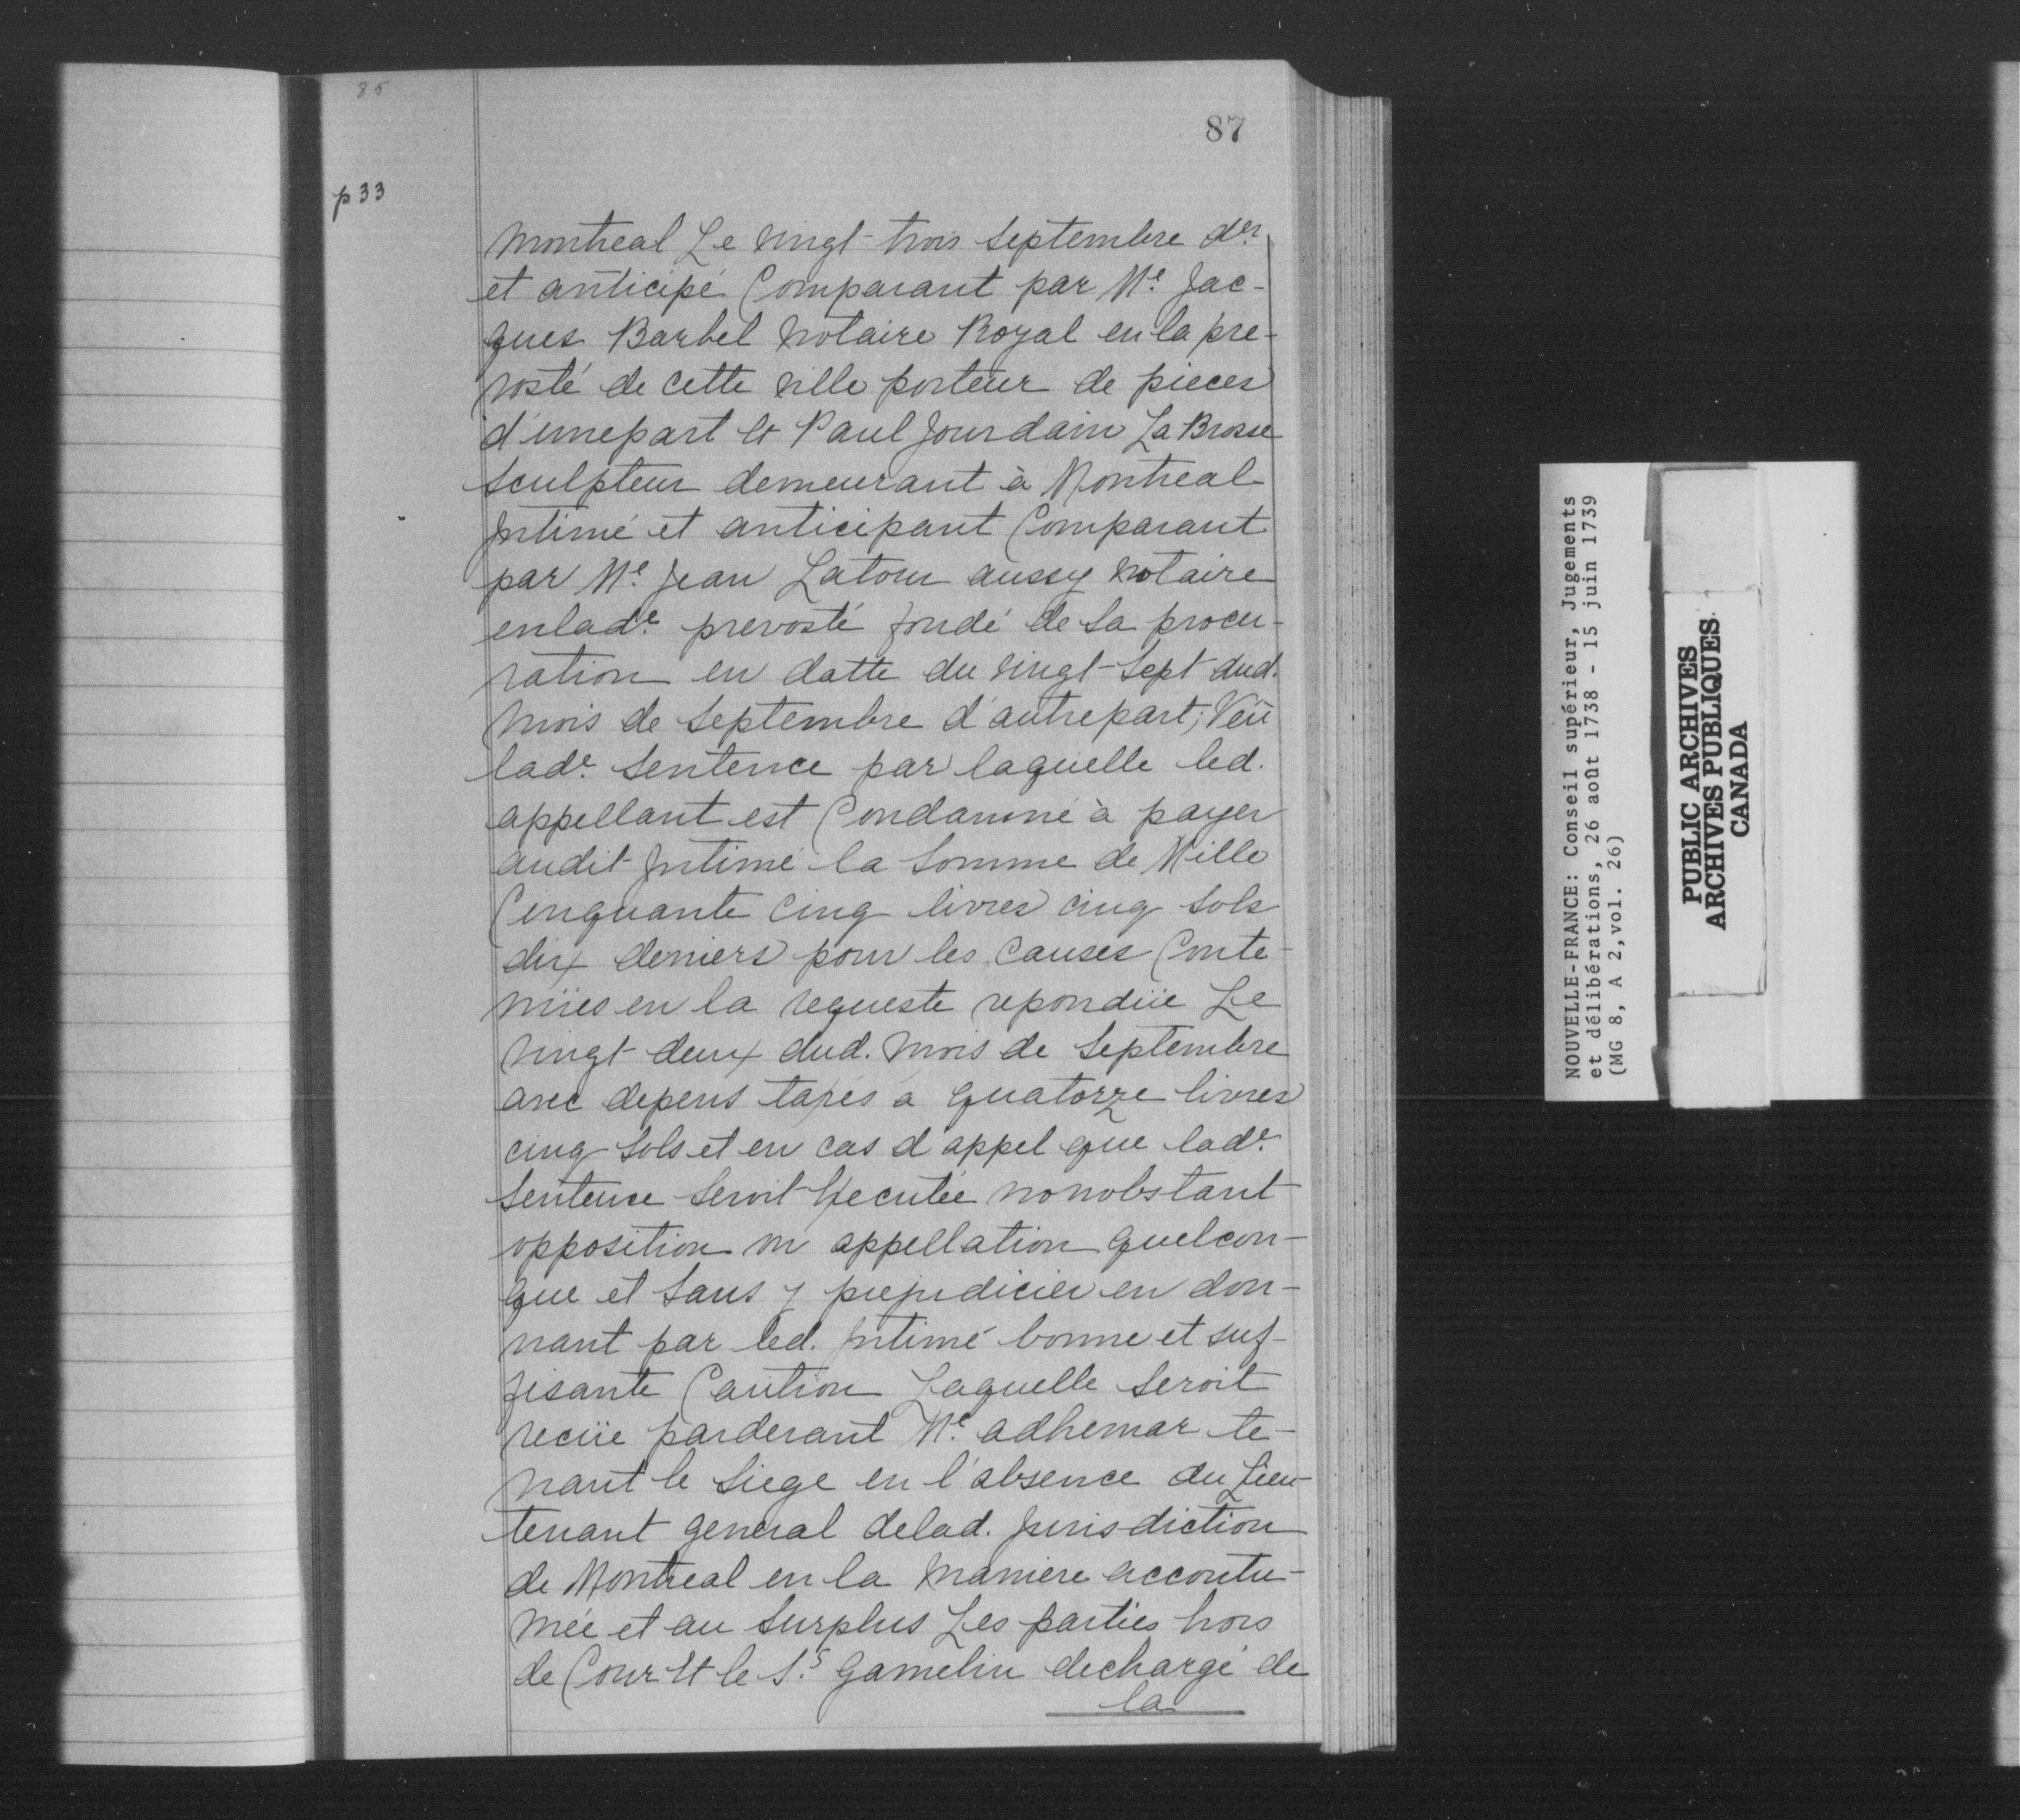 85
87
p 33
Montreal Le vingt-trois Septembre der.
et anticipé Comparant par Me. Jac-
ques Barbel Notaire Royal en la pre-
vosté de cette ville porteur de pieces
d'unepart Et Paul Jourdain La Brosse
Sculpteur demeurant à Montreal
Intimé et anticipant Comparant
par Me. Jean Latour aussy Notaire
enlade. prevosté fondé de Sa procu-
ration en datte du vingt-Sept dud.
Mois de Septembre d'autrepart; Veû
lade. Sentence par laquelle led.
appellant est Condamné à payer
audit Intimé la Somme de Mille
Cinquante Cinq livres cinq Sols
dix deniers pour les Causes Conte-
nües en la requeste repondüe Le
vingt-deux dud. Mois de Septembre
avec depens taxés a quatorze livres
cinq Sols et en cas d'appel que lade.
Sentence Seroit Executée nonobstant
opposition ou appellation quelcon-
que et Sans y prejudicier en don-
nant par led. Intimé bonne et suf-
fisante Caution Laquelle Seroit
reciie pardevant Me. adhemar te-
nant le Siege en l'absence du Lieu-
tenant general delad. Jurisdiction
de Montreal en la Maniere accoutu-
mée et au Surplus Les parties hors
de Cour Et le S.s Gamelin dechargé de
la
NOUVELLE-FRANCE: Conseil supérieur, Jugements
et délibérations, 26 août 1738 - 15 juin 1739
(MG 8, A 2,vol. 26)
PUBLIC ARCHIVES
ARCHIVES PUBLIQUES
CANADA